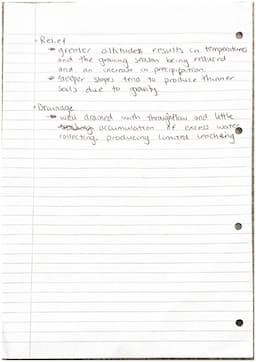 • Relief
→ greater altitudes results in temperatures
and the growing season being reduced
and an increase in precipitation.
→ steeper slopes tend to produce thinner
soils due to gravity
• Drainage
→ well drained with throughflow and little
accumulation of excess water
collecting, producing limited leaching